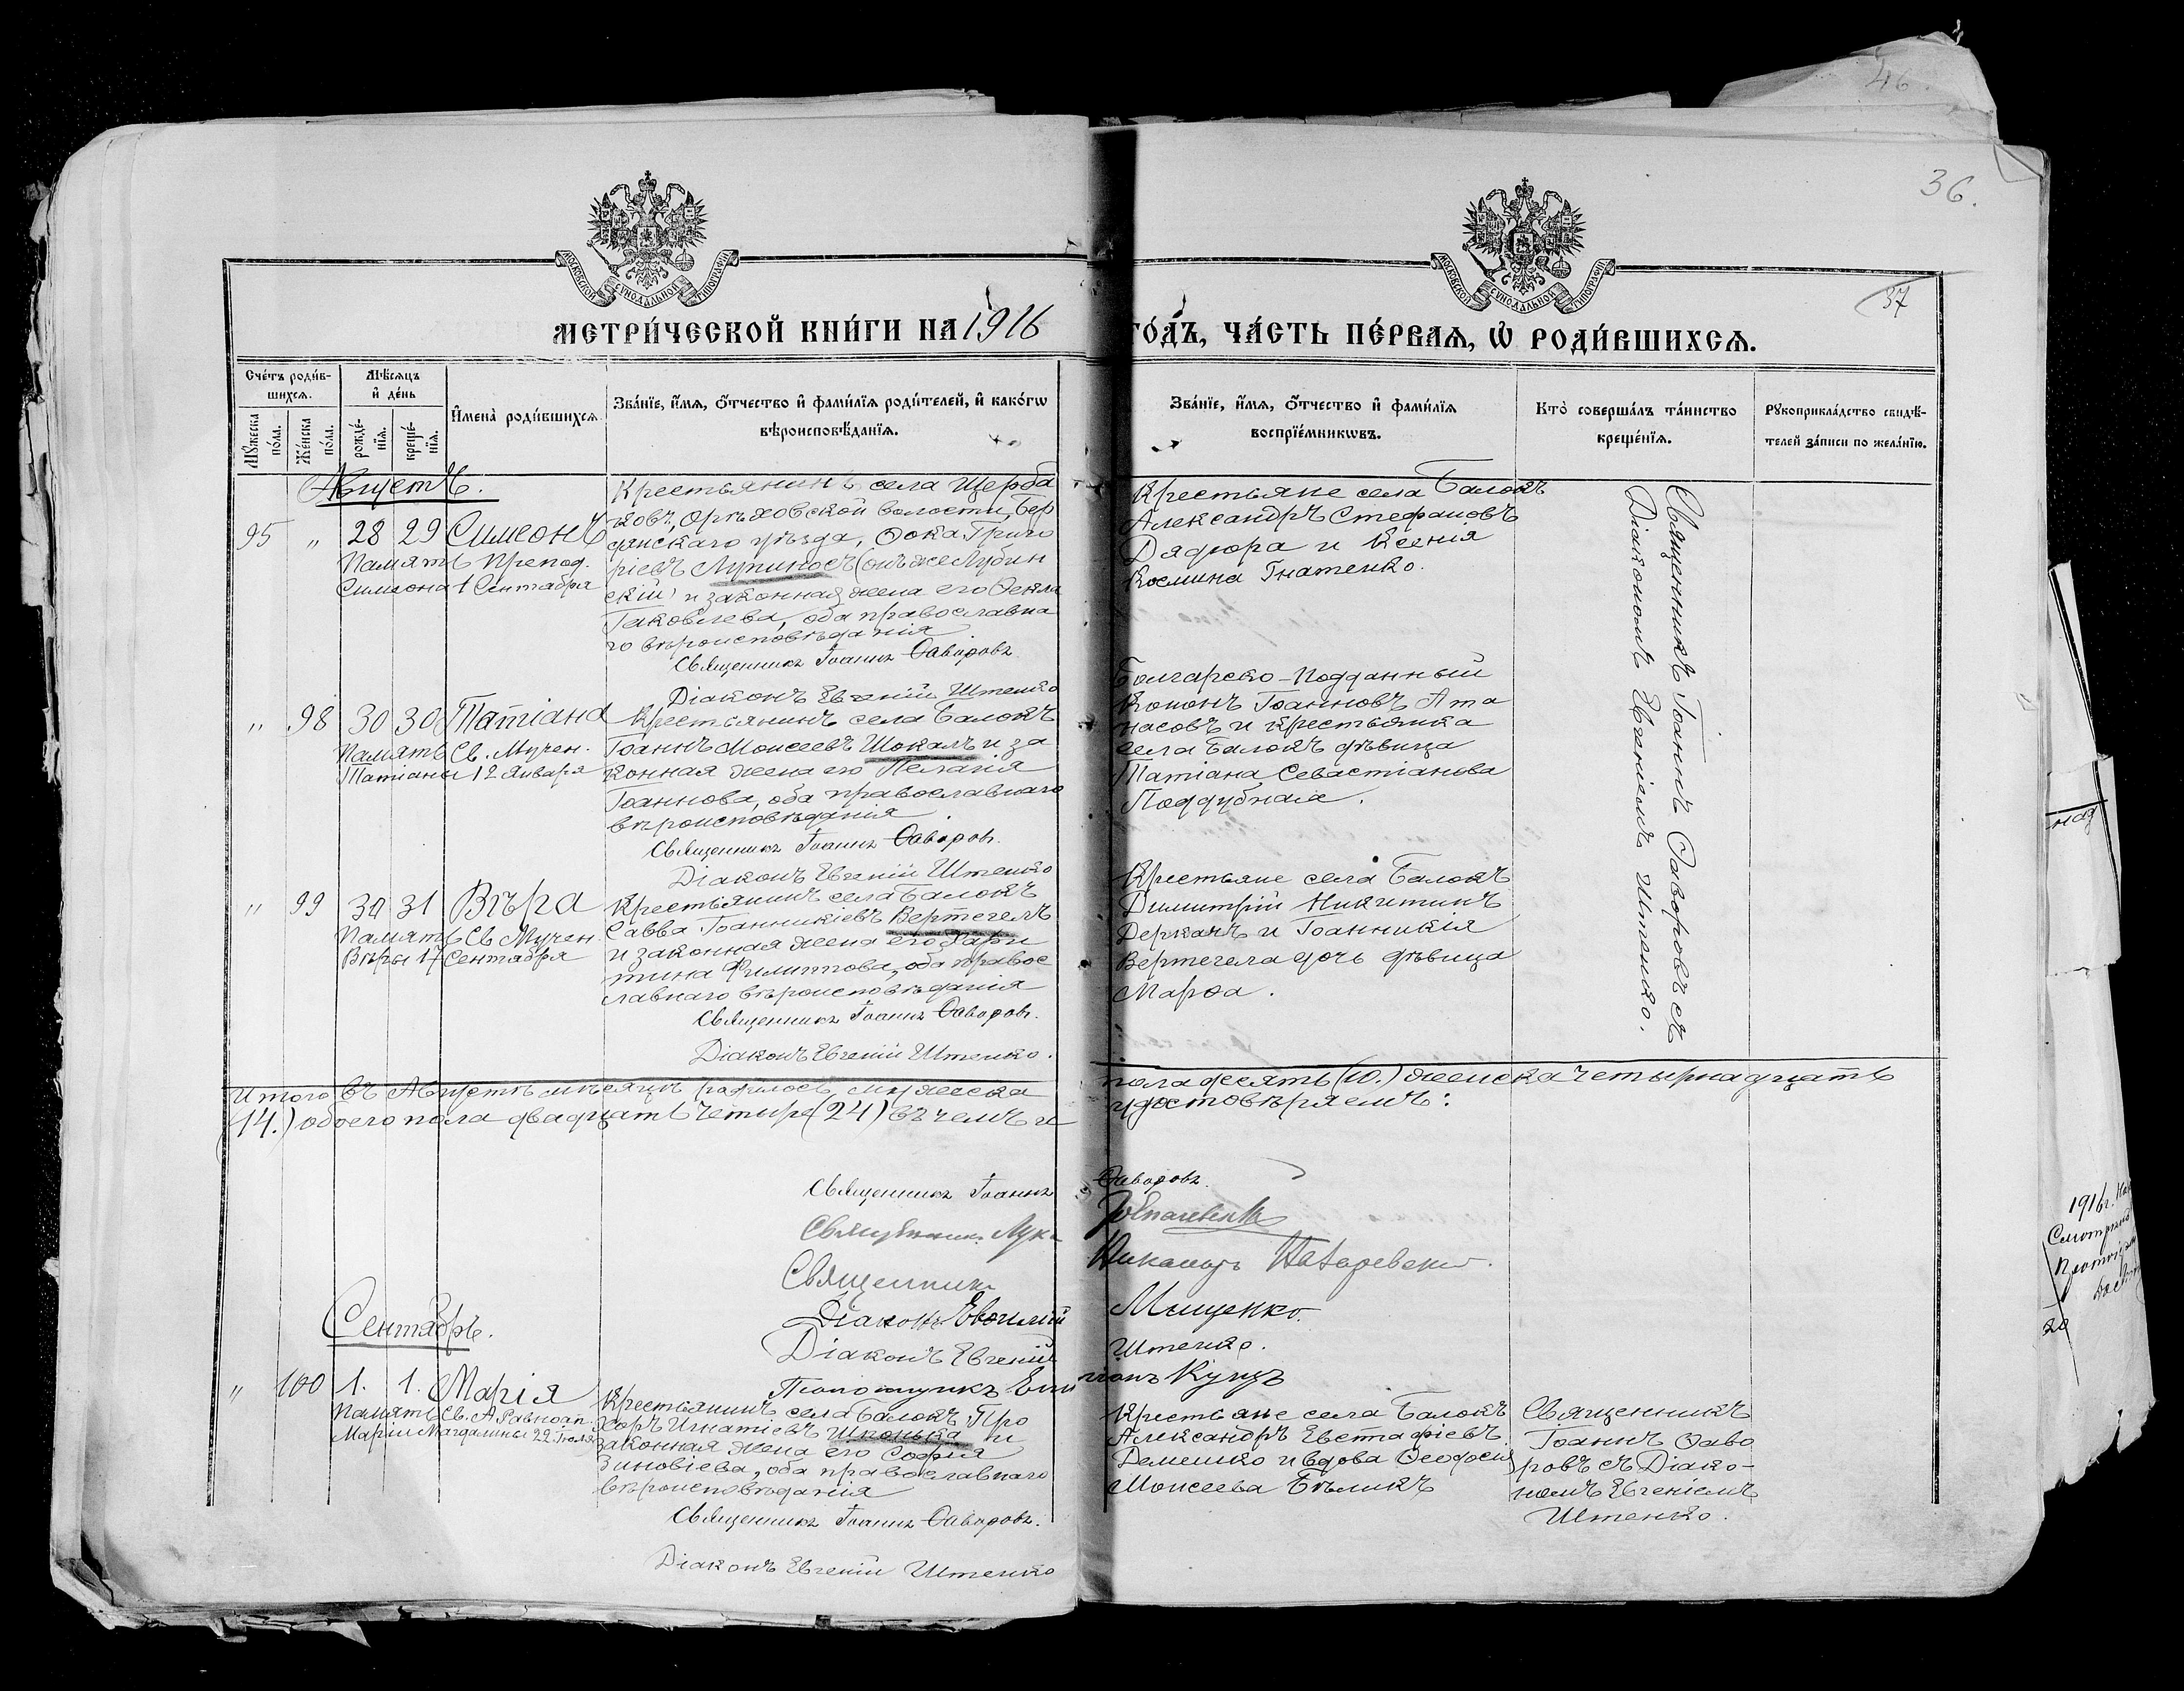 46
36.
37
МОСКОВСКОЙ СѴНОДАЛЬНОЙ ТИПОГРАФІИ
МОСКОВСКОЙ СѴНОДАЛЬНОЙ ТИПОГРАФІИ
МЕТРИ́ЧЕСКОЙ КНИ́ГИ НА 1916
ГО́ДЪ, ЧА́СТЬ ПЕ́РВАѦ, Ѡ҆ РОДИ́ВШИХСѦ.
Сче́тъ роди́в-
шихсѧ.
Мꙋ́жеска по́ла.
Же́нска по́ла.
Мѣ́сѧцъ
и҆ де́нь
рожде́-
нїѧ.
креще́-
нїѧ.
И҆мена̀ роди́вшихсѧ.
Зва́нїе, и҆́мѧ, ѻ҆́тчество и҆ фами́лїѧ роди́телей, и҆ како́гѡ
вѣроисповѣ́данїѧ.
Зва́нїе, и҆́мѧ, ѻ҆́тчество и҆ фами́лїѧ
воспрїе́мникѡвъ.
Кто̀ соверша́лъ та́инство
креще́нїѧ.
Рꙋкоприкла́дство свидѣ́-
телей за́писи по жела́нїю.
Августъ.
95 " 28 29 Симеонъ
Память Препод.
Симеона 1 Сентября
Крестьянинъ села Щерба
ковъ, Орѣховской волости, Бер
дянскаго уѣзда, Ѳока Григо
ріевъ Лупиносъ (онъ же Лубин
скій) и законная жена его Ѳекла
Іаковлева, оба православна
го вѣроисповѣданія
Священникъ Іоаннъ Ѳаворовъ.
Діаконъ Евгеній Штепко
Крестьяне села Балокъ
Александръ Стефановъ
Дядюра и Ксенія
Космина Гнатенко.
Священникъ Іоаннъ Ѳаворовъ съ
Діакономъ Евгеніемъ Штепко.
" 98 30 30 Татіана
Память Св. Мучен.
Татіаны 12 Января
Крестьянинъ села Балокъ
Іоаннъ Моисеевъ Шокалъ и за
конная жена его Пелагія
Іоаннова, оба православнаго
вѣроисповѣданія.
Священникъ Іоаннъ Ѳаворовъ.
Діаконъ Евгеній Штепко
Болгарско-подданный
Кононъ Іоанновъ Ата
насовъ и крестьянка
села Балокъ дѣвица
Татіана Севастіанова
Поддубная.
" 99 30 31 Вѣра
Память Св. Мучен.
Вѣры 17 Сентября
Крестьянинъ села Балокъ
Савва Іоанникіевъ Вертегелъ
и законная жена его Хари
тина Филиппова, оба правос
лавнаго вѣроисповѣданія
Священникъ Іоаннъ Ѳаворовъ.
Діаконъ Евгеній Штепко.
Крестьяне села Балокъ
Димитрій Никитинъ
Деркачъ и Іоанникія
Вертегела дочь дѣвица
Марѳа.
Итого въ Августѣ мѣсяцѣ родилось мужеска
пола десять (10.) женска четырнадцать
(14.) обоего пола двадцать четыре (24) въ чемъ и
удостовѣряемъ:
Священникъ Іоаннъ Ѳаворовъ.
Священникъ Лука
Священникъ Никаноръ
Діаконъ Евѳимій Мищенко.
Діаконъ Евгеній Штепко.
Псаломщикъ
Сентябрь.
" 100 1. 1. Марія
Память Св. Равноап.
Маріи Магдалины 22 Іюля
Крестьянинъ села Балокъ Про
хоръ Игнатіевъ Шпонька и
законная жена его Софія
Зиновіева, оба православнаго
вѣроисповѣданія
Священникъ Іоаннъ Ѳаворовъ.
Діаконъ Евгеній Штепко
Крестьяне села Балокъ
Александръ Евстафіевъ
Демешко и вдова Ѳеодосія
Моисеева Бѣликъ
Священникъ
Іоаннъ Ѳаво
ровъ съ Діако-
номъ Евгеніемъ
Штепко.
1916 г.